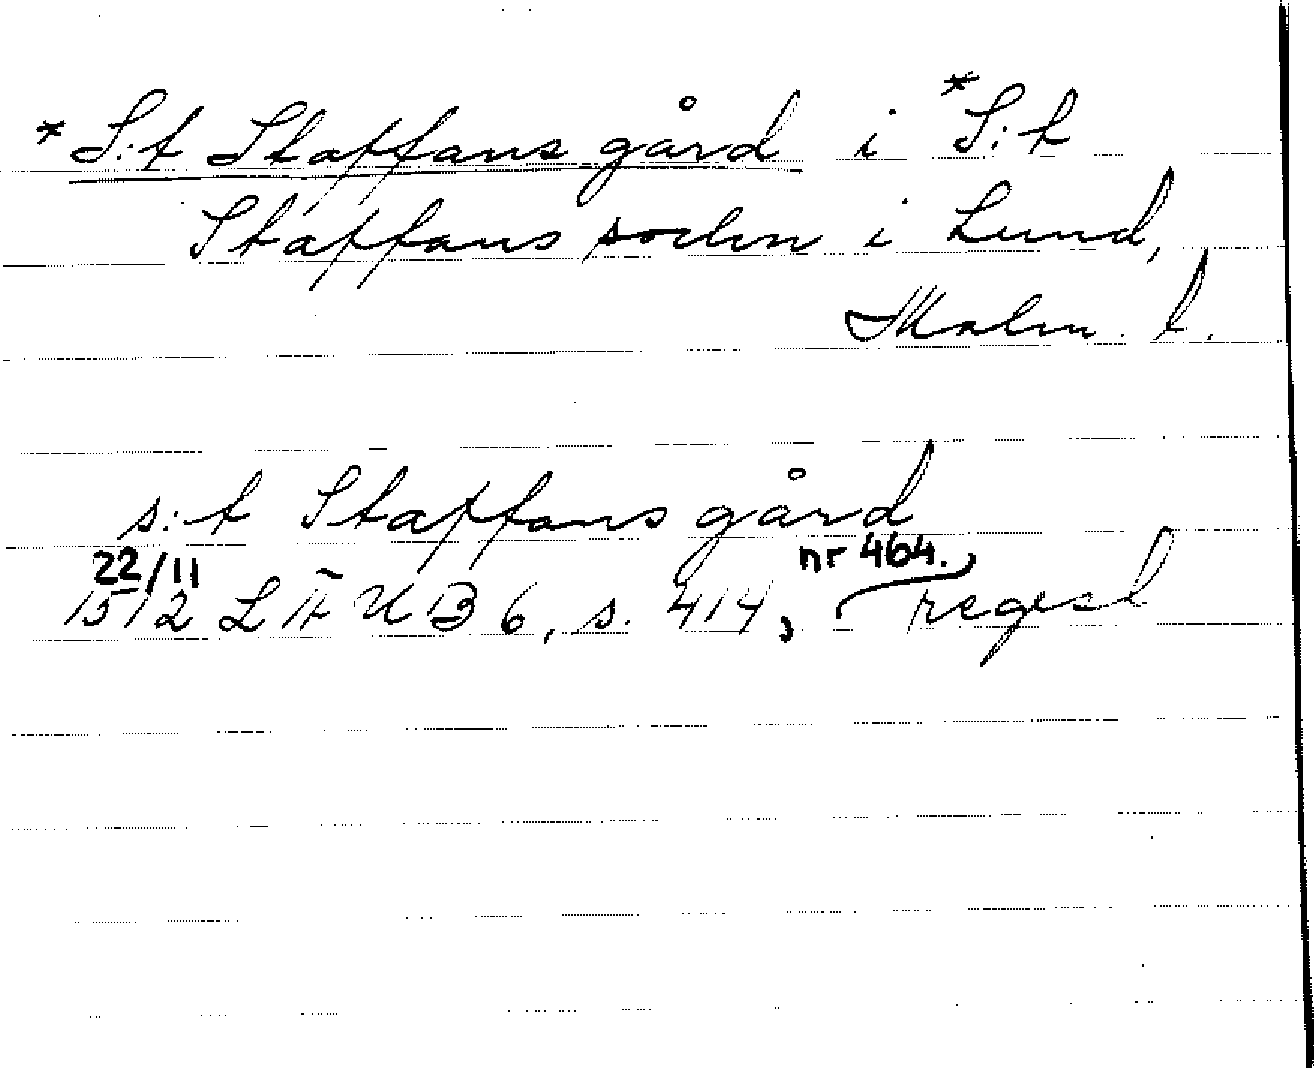 *S:t Staffans gård i *S:t
Staffans socken i Lund,
Malm. l.
s:t Staffans gård
22/11 nr 464.
1512 LÄUB 6, s. 414, regest